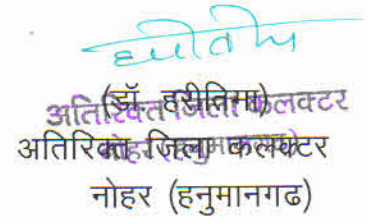 (डॉ. हरीतिमा)
अतिरिक्त जिला कलक्टर
अतिरिक्त जिला कलक्टर
नोहर (हनुमानगढ)